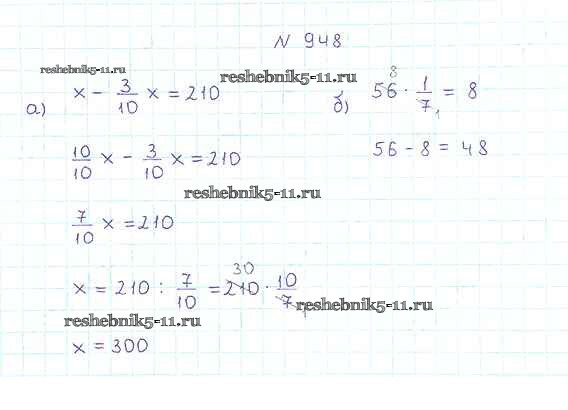 N 948
reshebnik5-11.ru
reshebnik5-11.ru
а) x - 3/10 x = 210
10/10 x - 3/10 x = 210
reshebnik5-11.ru
7/10 x = 210
x = 210 : 7/10 = 210 30 · 10/7 1
reshebnik5-11.ru
reshebnik5-11.ru
x = 300
б) 56 8 · 1/7 1 = 8
56 - 8 = 48